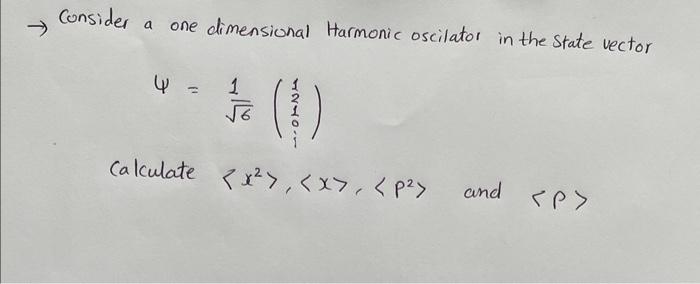 → Consider a one dimensional Harmonic oscilator in the state vector
ψ = 1/√6 (1 2 1 0 ⋮)
Calculate <x²>, <x>, <p²> and <p>